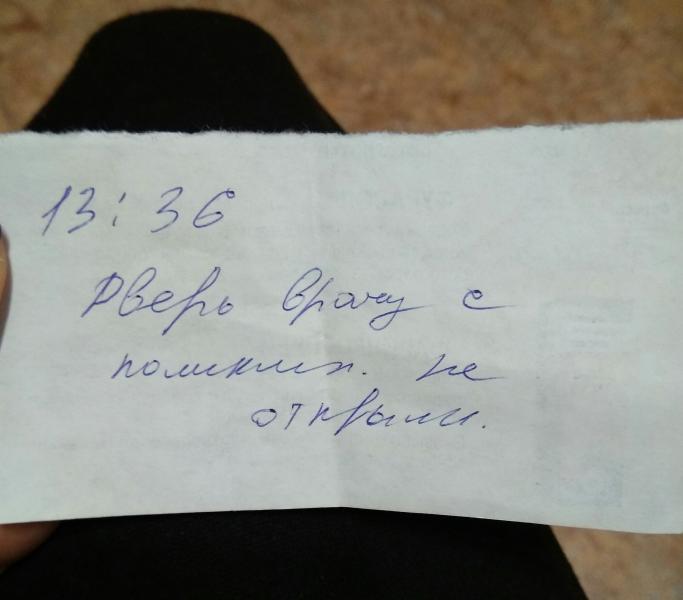 13:36
Дверь врачу с
поликлин. не
открыли.